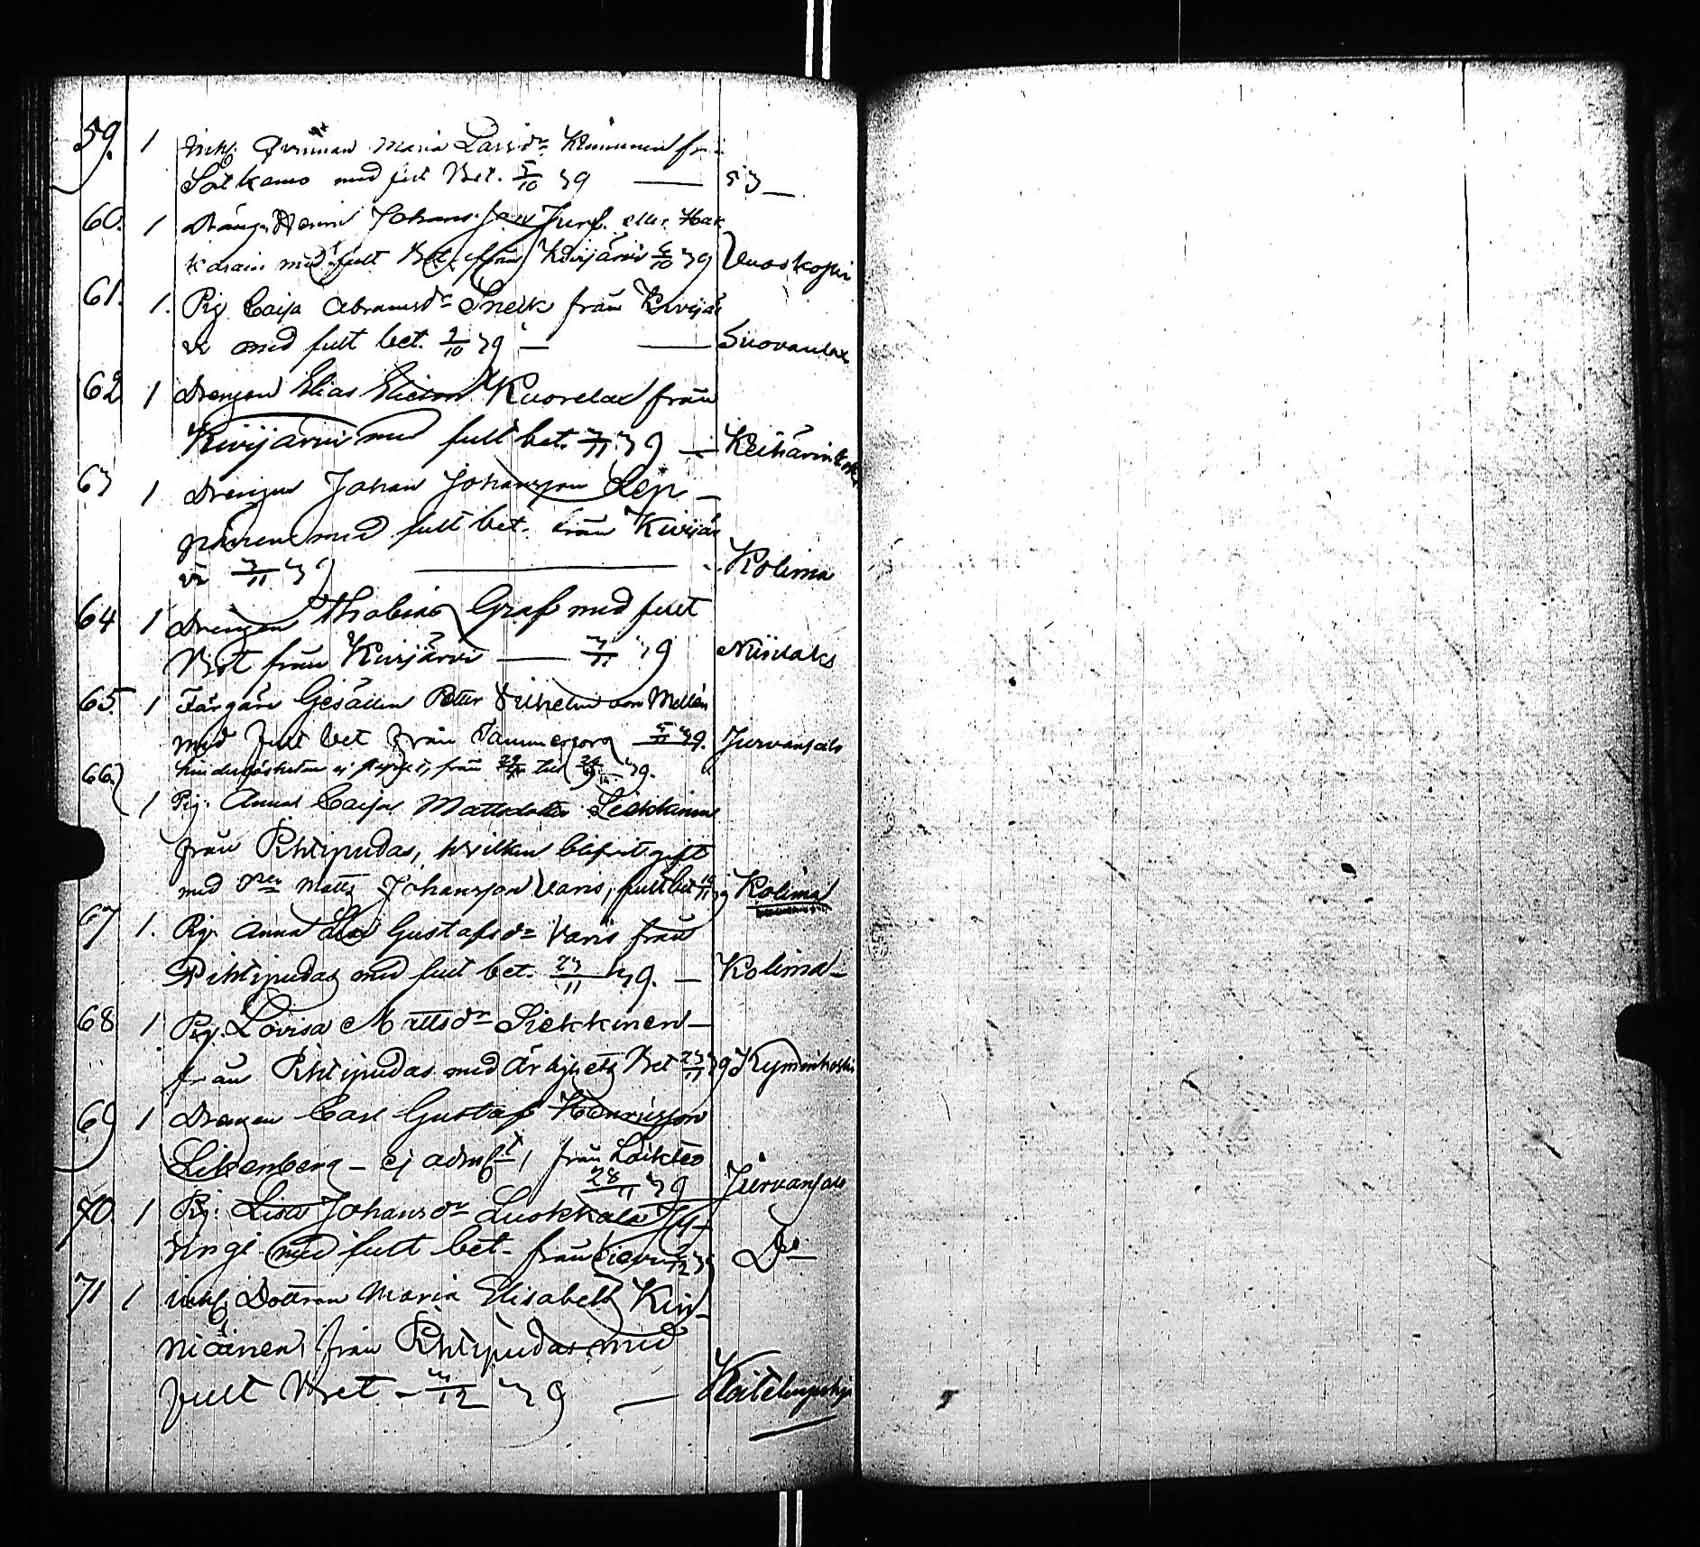 59. 1 Inhs. Qvinnan Maria Larsdr Kinnunen från
Sotkamo med fult Bet. 5/10 39 — 53 —
60. 1 Dräng. Henric Johansson Jurf. eller Hak
karain med fult Bet. från Kivijärvi 6/10 39 Vuoskoski
61. 1. Pig. Caisa Abramsdr Snell från Kivijär
vi med fult bet. 9/10 39 — — Suovanlax
62 1 Drengen Elias Eliasson Kuorelax från
Kivijärvi med fult bet. 3/11 39 — Keihärinkoski
63 1 Drengen Johan Johansson Lep-
pänen med fult bet. från Kivijär
vi 3/11 39 — Kolima
64 1 Drengen Thobias Graf med fult
Bet från Kivijärvi — 3/11 39 Niinilaks
65. 1 Färgare Gesällen Petter Vilhelm von Mellén
med fult bet från Tammerfors 5/11 39. Jurvansalo
hinderslösheten ej styrkt, från till 39.
66. 1 Pig. Anna Caisa Mattsdotter Siekkinen
från Pihtipudas, hvilken blifvit gift
med Matts Johansson Varis, fult bet 39 Kolima
67 1. Pig. Anna Lisa Gustafsdr Varis från
Pihtipudas med fult bet. 23/11 39. — Kolima —
68 1 Pig. Lovisa Mattsdr Siekkinen —
från Pihtipudas med ärlighets Bet 23/11 39 Kymönkoski
69 1 Drengen Carl Gustaf Henricsson
Liljenberg — ej admitt, från Loikteo
28/11 39 Jurvansalo
70. 1 Pig. Lisa Johansdr Luokkala
ringi med fult bet — från Kievi 39 Do
71 1 inhs Dottren Maria Elisabeth Kin-
niäinen, från Pihtipudas med
fult Bet — 3/12 39 — Keitelepohja